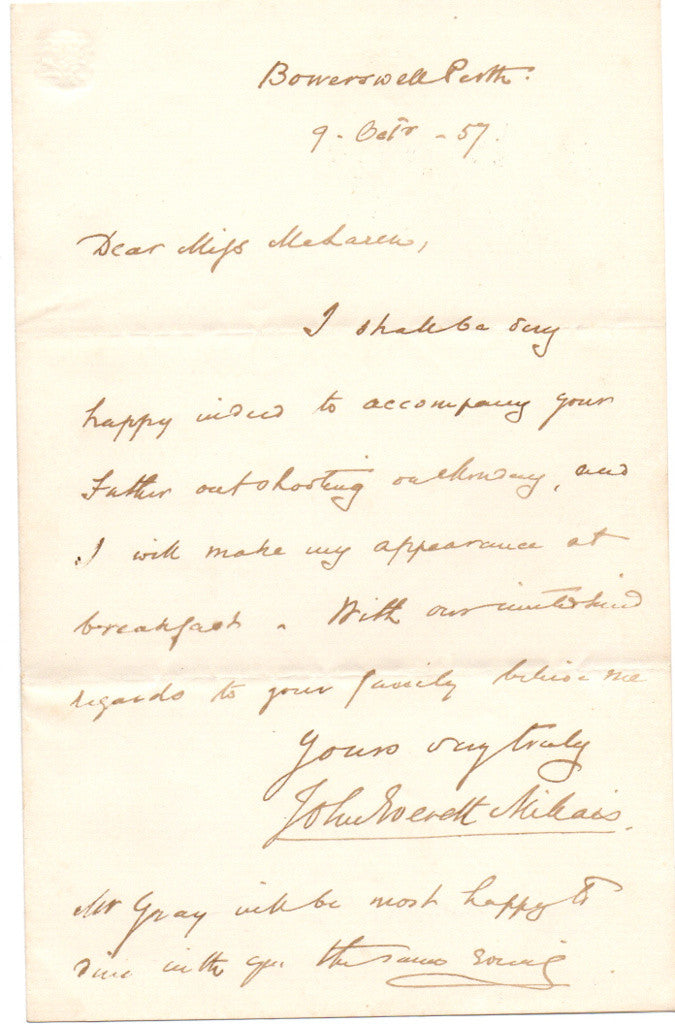 Bowerswell Perth.
9. Octr - 57.
Dear Miss McLaren,
I shall be very
happy indeed to accompany your
Father out shooting on Monday, and
I will make my appearance at
breakfast. With our united kind
regards to your family believe me
Yours very truly
John Everett Millais.
Mr Gray will be most happy to
dine with you the same evening